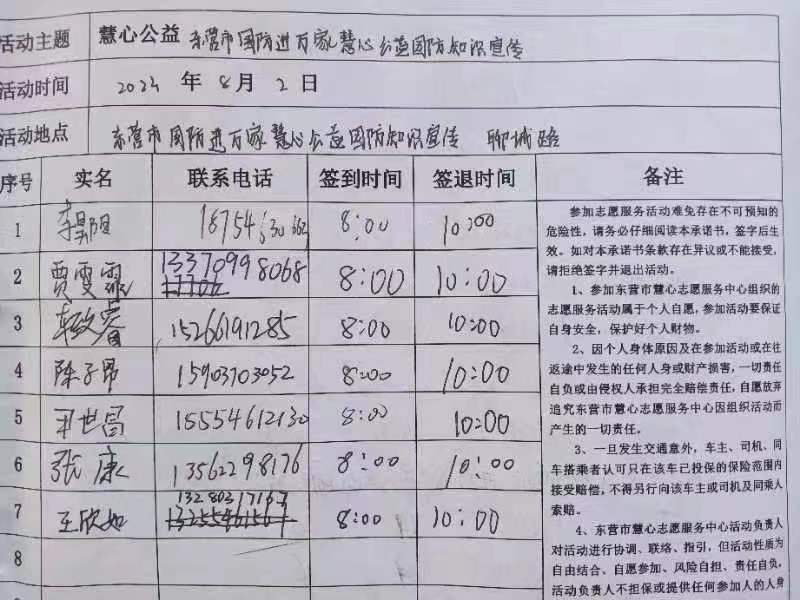 活动主题 慧心公益 东营市国防进万家慧心公益国防知识宣传
活动时间 2024 年 8 月 2 日
活动地点 东营市国防进万家慧心公益国防知识宣传 聊城路
序号 实名 联系电话 签到时间 签退时间 备注
1 18754630662 8:00 10:00
2 贾雯霏 13370998068 8:00 10:00
3 15266191285 8:00 10:00
4 陈子昂 15903703052 8:00 10:00
5 世昌 15554612130 8:00 10:00
6 张康 13562298176 8:00 10:00
7 王欣如 13280317167 8:00 10:00
8
参加志愿服务活动难免存在不可预知的
危险性,请务必仔细阅读本承诺书,签字后生
效。如对本承诺书条款存在异议或不能接受,
请拒绝签字并退出活动。
1、参加东营市慧心志愿服务中心组织的
志愿服务活动属于个人自愿,参加活动要保证
自身安全,保护好个人财物。
2、因个人身体原因及在参加活动或在往
返途中发生的任何人身或财产损害,一切责任
自负或由侵权人承担完全赔偿责任,自愿放弃
追究东营市慧心志愿服务中心因组织活动而
产生的一切责任。
3、一旦发生交通意外,车主、司机、同
车搭乘者认可只在该车已投保的保险范围内
接受赔偿,不得另行向该车主或司机及同乘人
索赔。
4、东营市慧心志愿服务中心活动负责人
对活动进行协调、联络、指引,但活动性质为
自由结合、自愿参加、风险自担、责任自负,
活动负责人不担保或提供任何参加人的人身